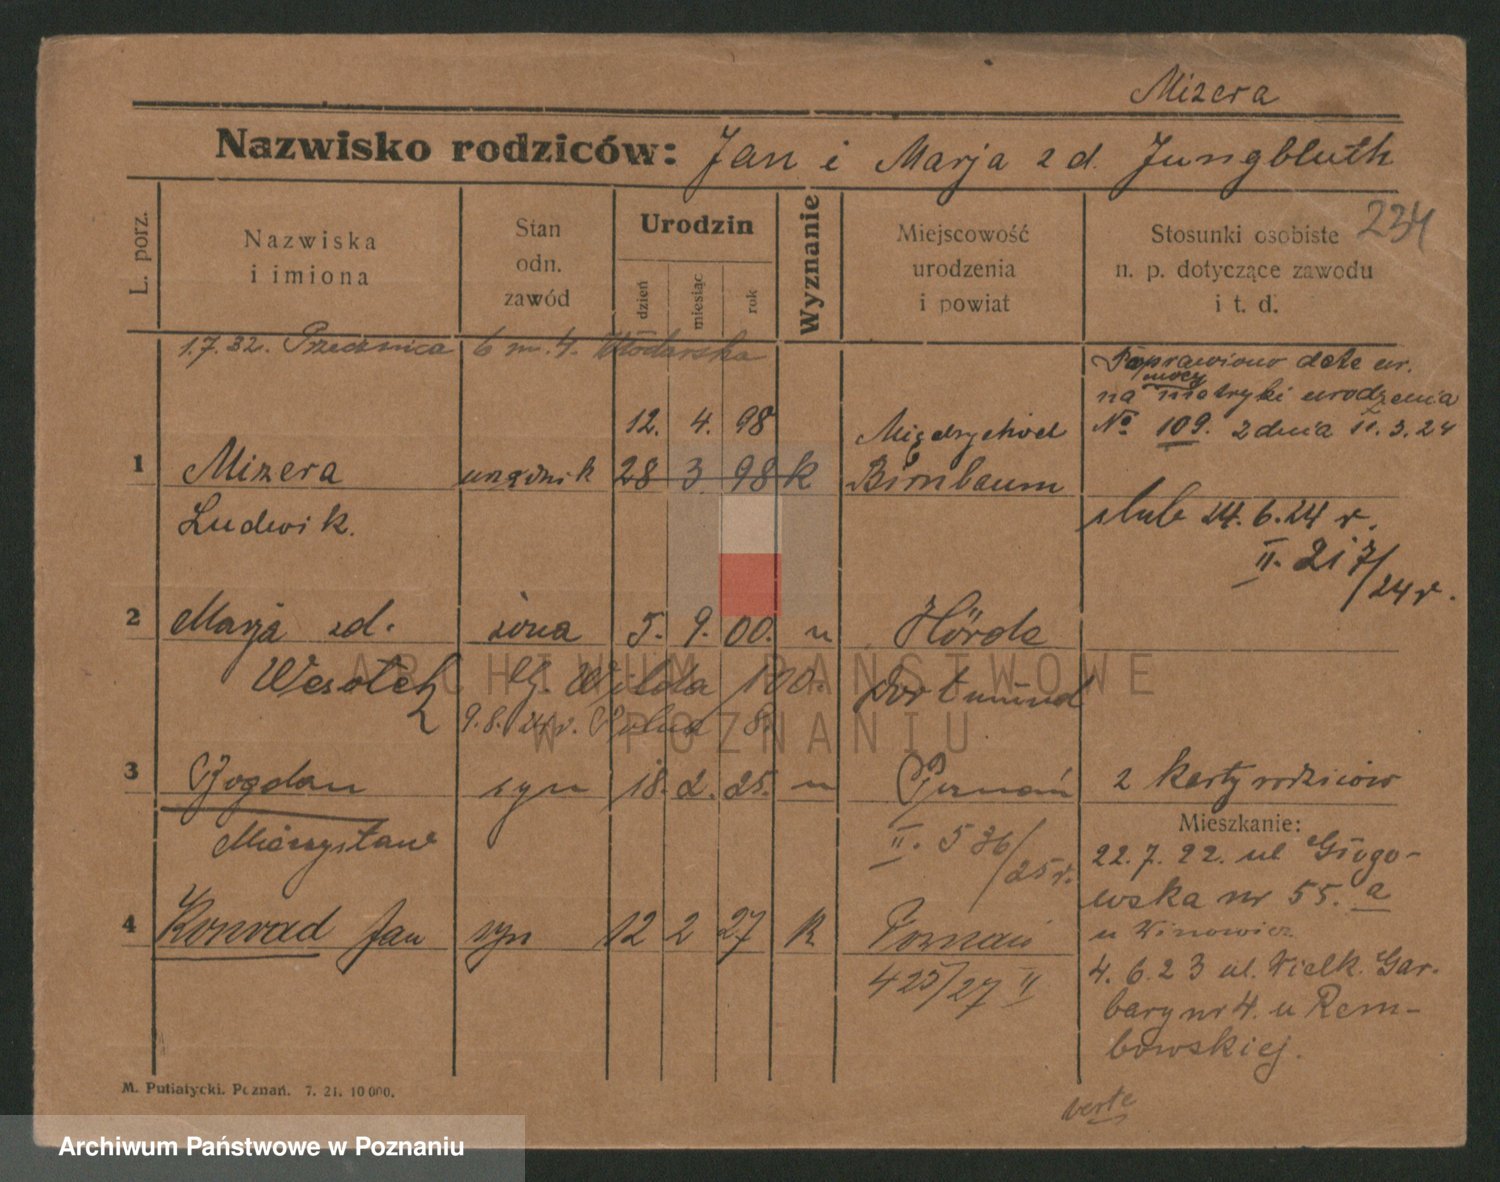 Mizera
Nazwisko rodziców: Jan i Marja z d. Jungbluth
234
L. porz.
Nazwiska
i imiona
Stan
odn.
zawód
Urodzin
dzień
miesiąc
rok
Wyznanie
Miejscowość
urodzenia
i powiat
Stosunki osobiste
n. p. dotyczące zawodu
i t. d.
1.7.32. Przecznica 6 m. 4. Włodarska
Poprawiono datę ur.
na mocy metryki urodzenia
No 109. z dnia 11.3.24
12. 4. 98
Międzychód
1 Mizera urzędnik 28 3. 98 k Birnbaum
Ludwik.
ślub 24.6.24 r.
II. 217/24 r.
2 Marja zd. żona 5. 9. 00. " Hörde
Wesołek G. Wilda 100. Dortmund
9.8.24 r. Polna 8.
3 Bogdan syn 18. 2. 25. " Poznań
Mieczysław
II. 536/25 r.
z karty rodziców
4 Konrad Jan syn 12 2 27 k Poznań
425/27 II
Mieszkanie:
22.7.22. ul Głogo-
wska nr 55. a
u Winowicz
4.6.23 ul. Wielk. Gar-
bary nr 4. u Rem-
bowskiej.
verte
M. Putiatycki. Poznań. 7. 21. 10 000.
ARCHIWUM PAŃSTWOWE
W POZNANIU
Archiwum Państwowe w Poznaniu